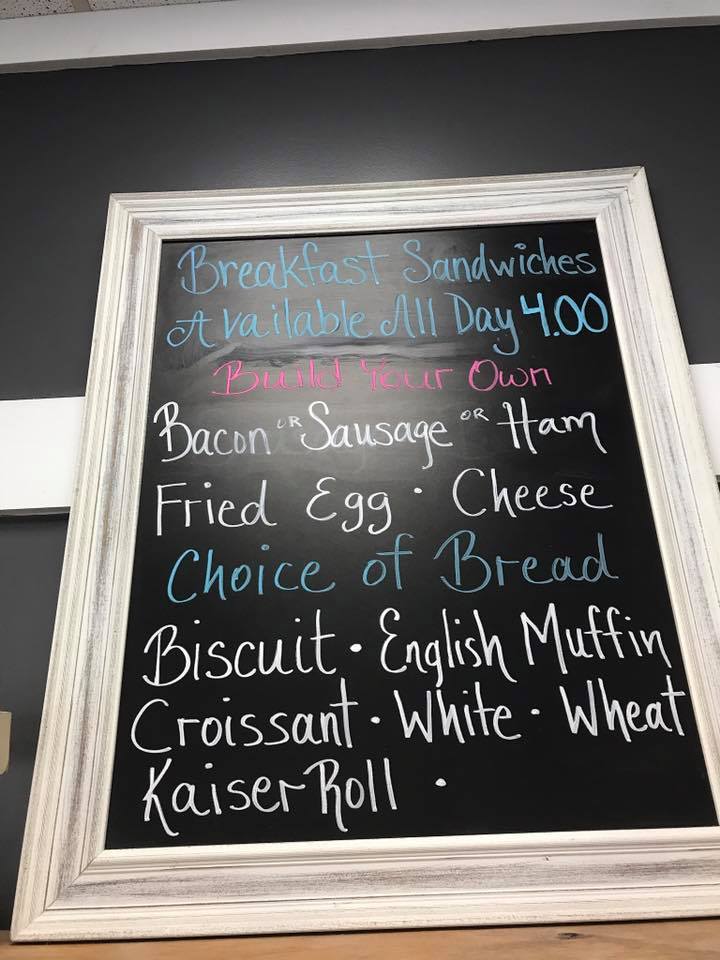 Breakfast Sandwiches
Available All Day 4.00
Build Your Own
Bacon OR Sausage OR Ham
Fried Egg · Cheese
Choice of Bread
Biscuit · English Muffin
Croissant · White · Wheat
Kaiser Roll ·